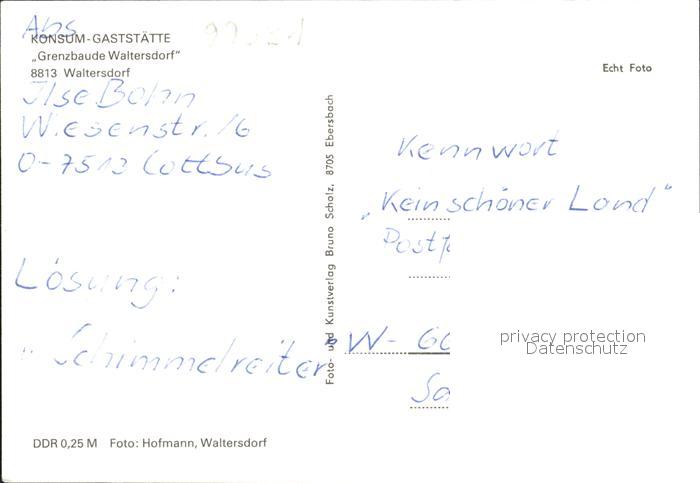 Abs
KONSUM-GASTSTÄTTE
„Grenzbaude Waltersdorf"
8813 Waltersdorf
Ilse Bohn
Wiesenstr. 16
O-7513 Cottbus
Lösung:
„Schimmelreiter"
DDR 0,25 M Foto: Hofmann, Waltersdorf
Foto- und Kunstverlag Bruno Scholz, 8705 Ebersbach
Echt Foto
Kennwort
„Kein schöner Land"
W-
privacy protection
Datenschutz